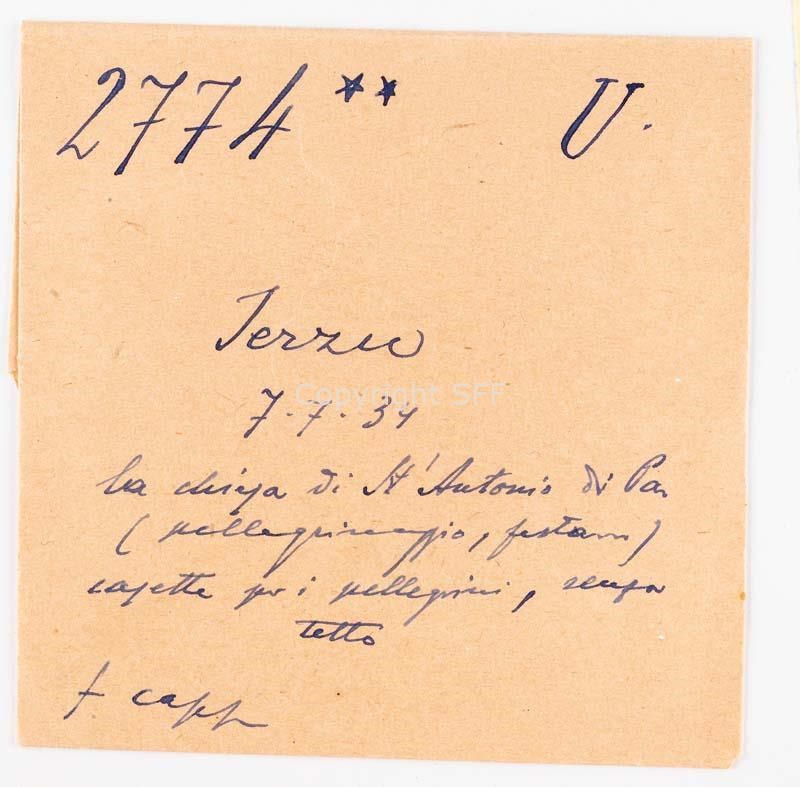 2774 ** U.
Jerzu
7.7.34
La chiesa di St' Antonio di
(pellegrinaggio,
casette per i pellegrini, senza
tetto
f capp
Copyright SFF